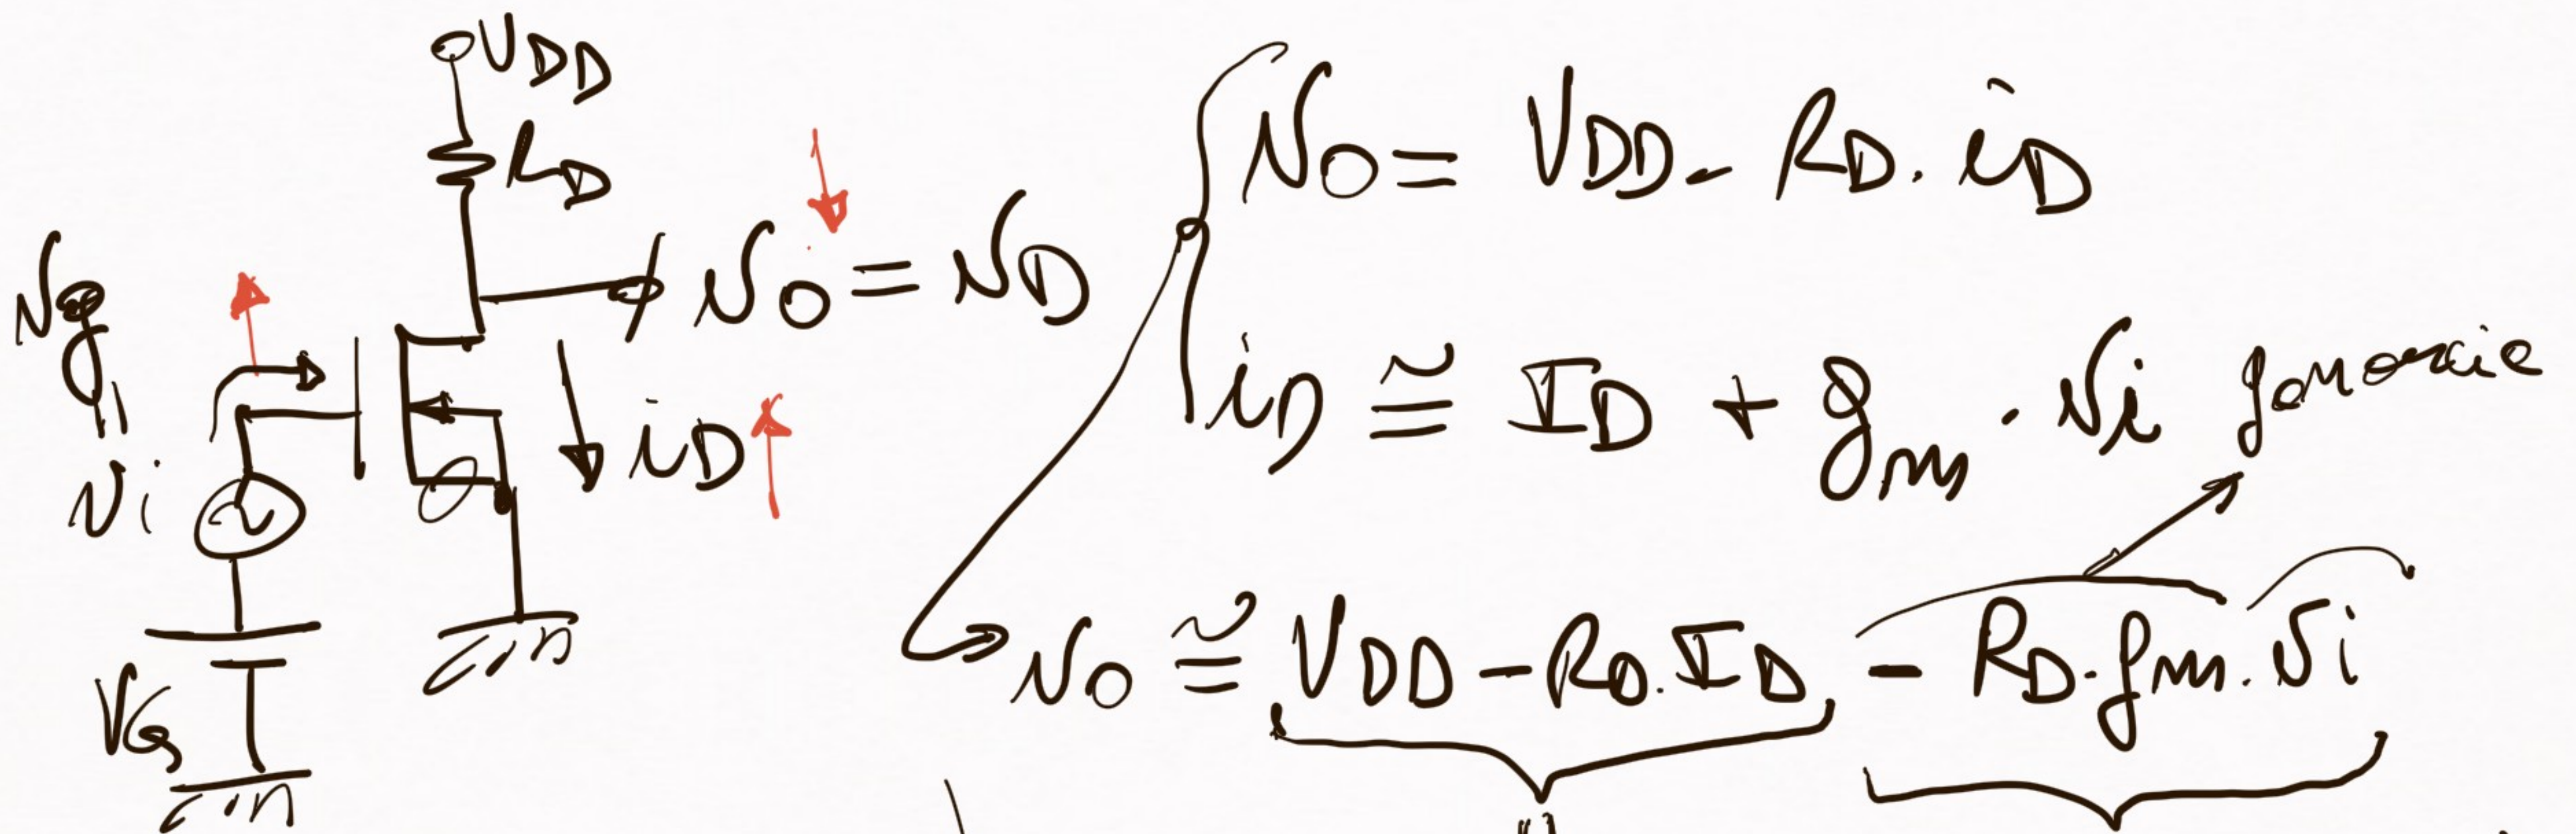 VDD
RD
vg
vo = vD
vi
iD
VG
vo = VDD - RD. iD
iD ≅ ID + gm . vi
vo ≅ VDD - RD. ID - RD. gm. vi